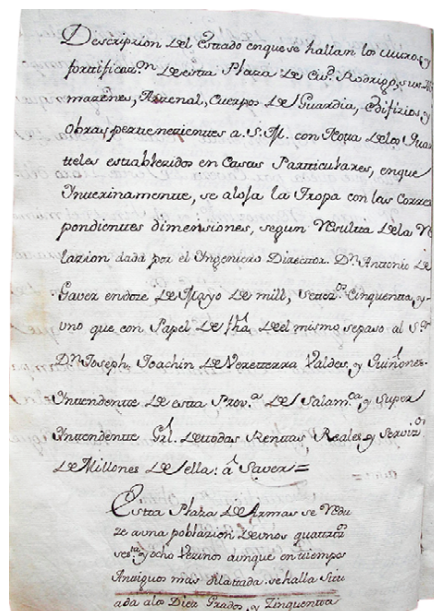 Descripzion del Estado enque se hallan los muros, y
fortificaz.on de esta Plaza de Ciu.d Rodrigo, sus Al
mazenes, Arsenal, Cuerpos de Guardia, edifizios y
obras pertenezientes a S. M. con Nota de los Quar
teles establezidos en Casas Particulares, enque
Interinamente, se aloja la Tropa con las Corres
pondientes dimensiones, segun Resulta dela Re
lazion dada por el Ingeniero Director D.n Antonio de
Gaver en doze de Mayo de mill, settez.os Cinquenta y
uno que con Papel de fha. deel mismo sepaso al S.or
D.n Joseph Joachin de Vereterra Valdes, y Quiñones
Intendente de esta Prov.a de Salam.ca y Super
Intendente Grl. detodas Rentas Reales y Serviz.os
de Millones de ella: â Saver=
Esta Plaza de Armas se Redu
ze auna poblazion deunos quattroz.os
ses.ta y ocho Vezinos aunque en tiempos
Antiguos mas dilattada. se halla Situ
ada alos Diez Grados, y Zinquenta